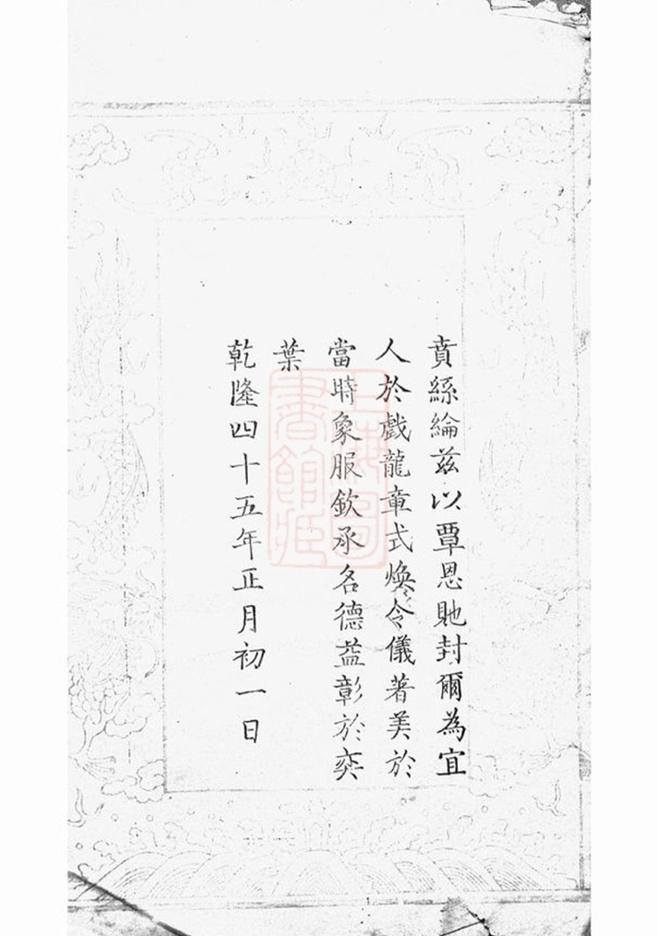 賁絲綸兹以覃恩貤封爾為宜
人於戲龍章式煥令儀著美於
當時象服欽承名德益彰於奕
葉
乾隆四十五年正月初一日
上海圖
書館藏